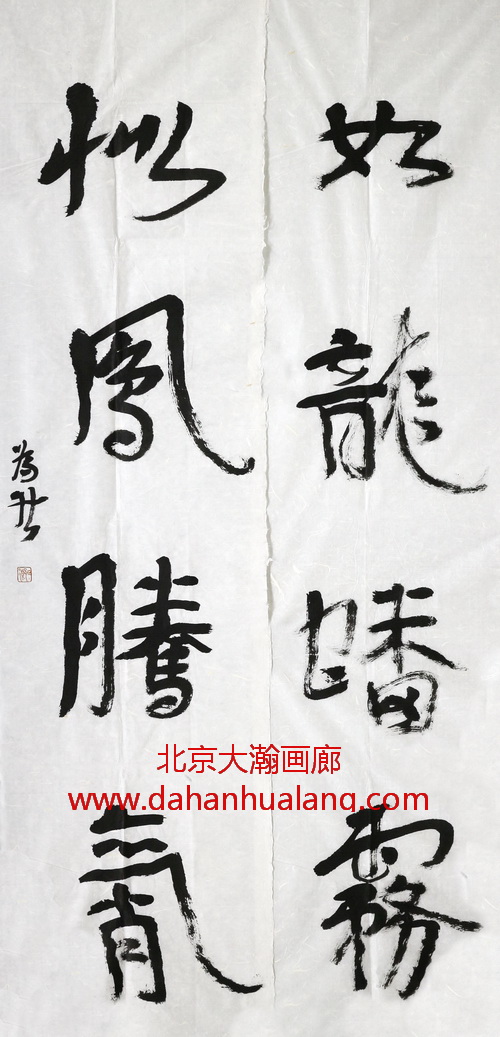 如龍蟠霧
似鳳騰
北京大瀚画廊
www.dahanhualang.com